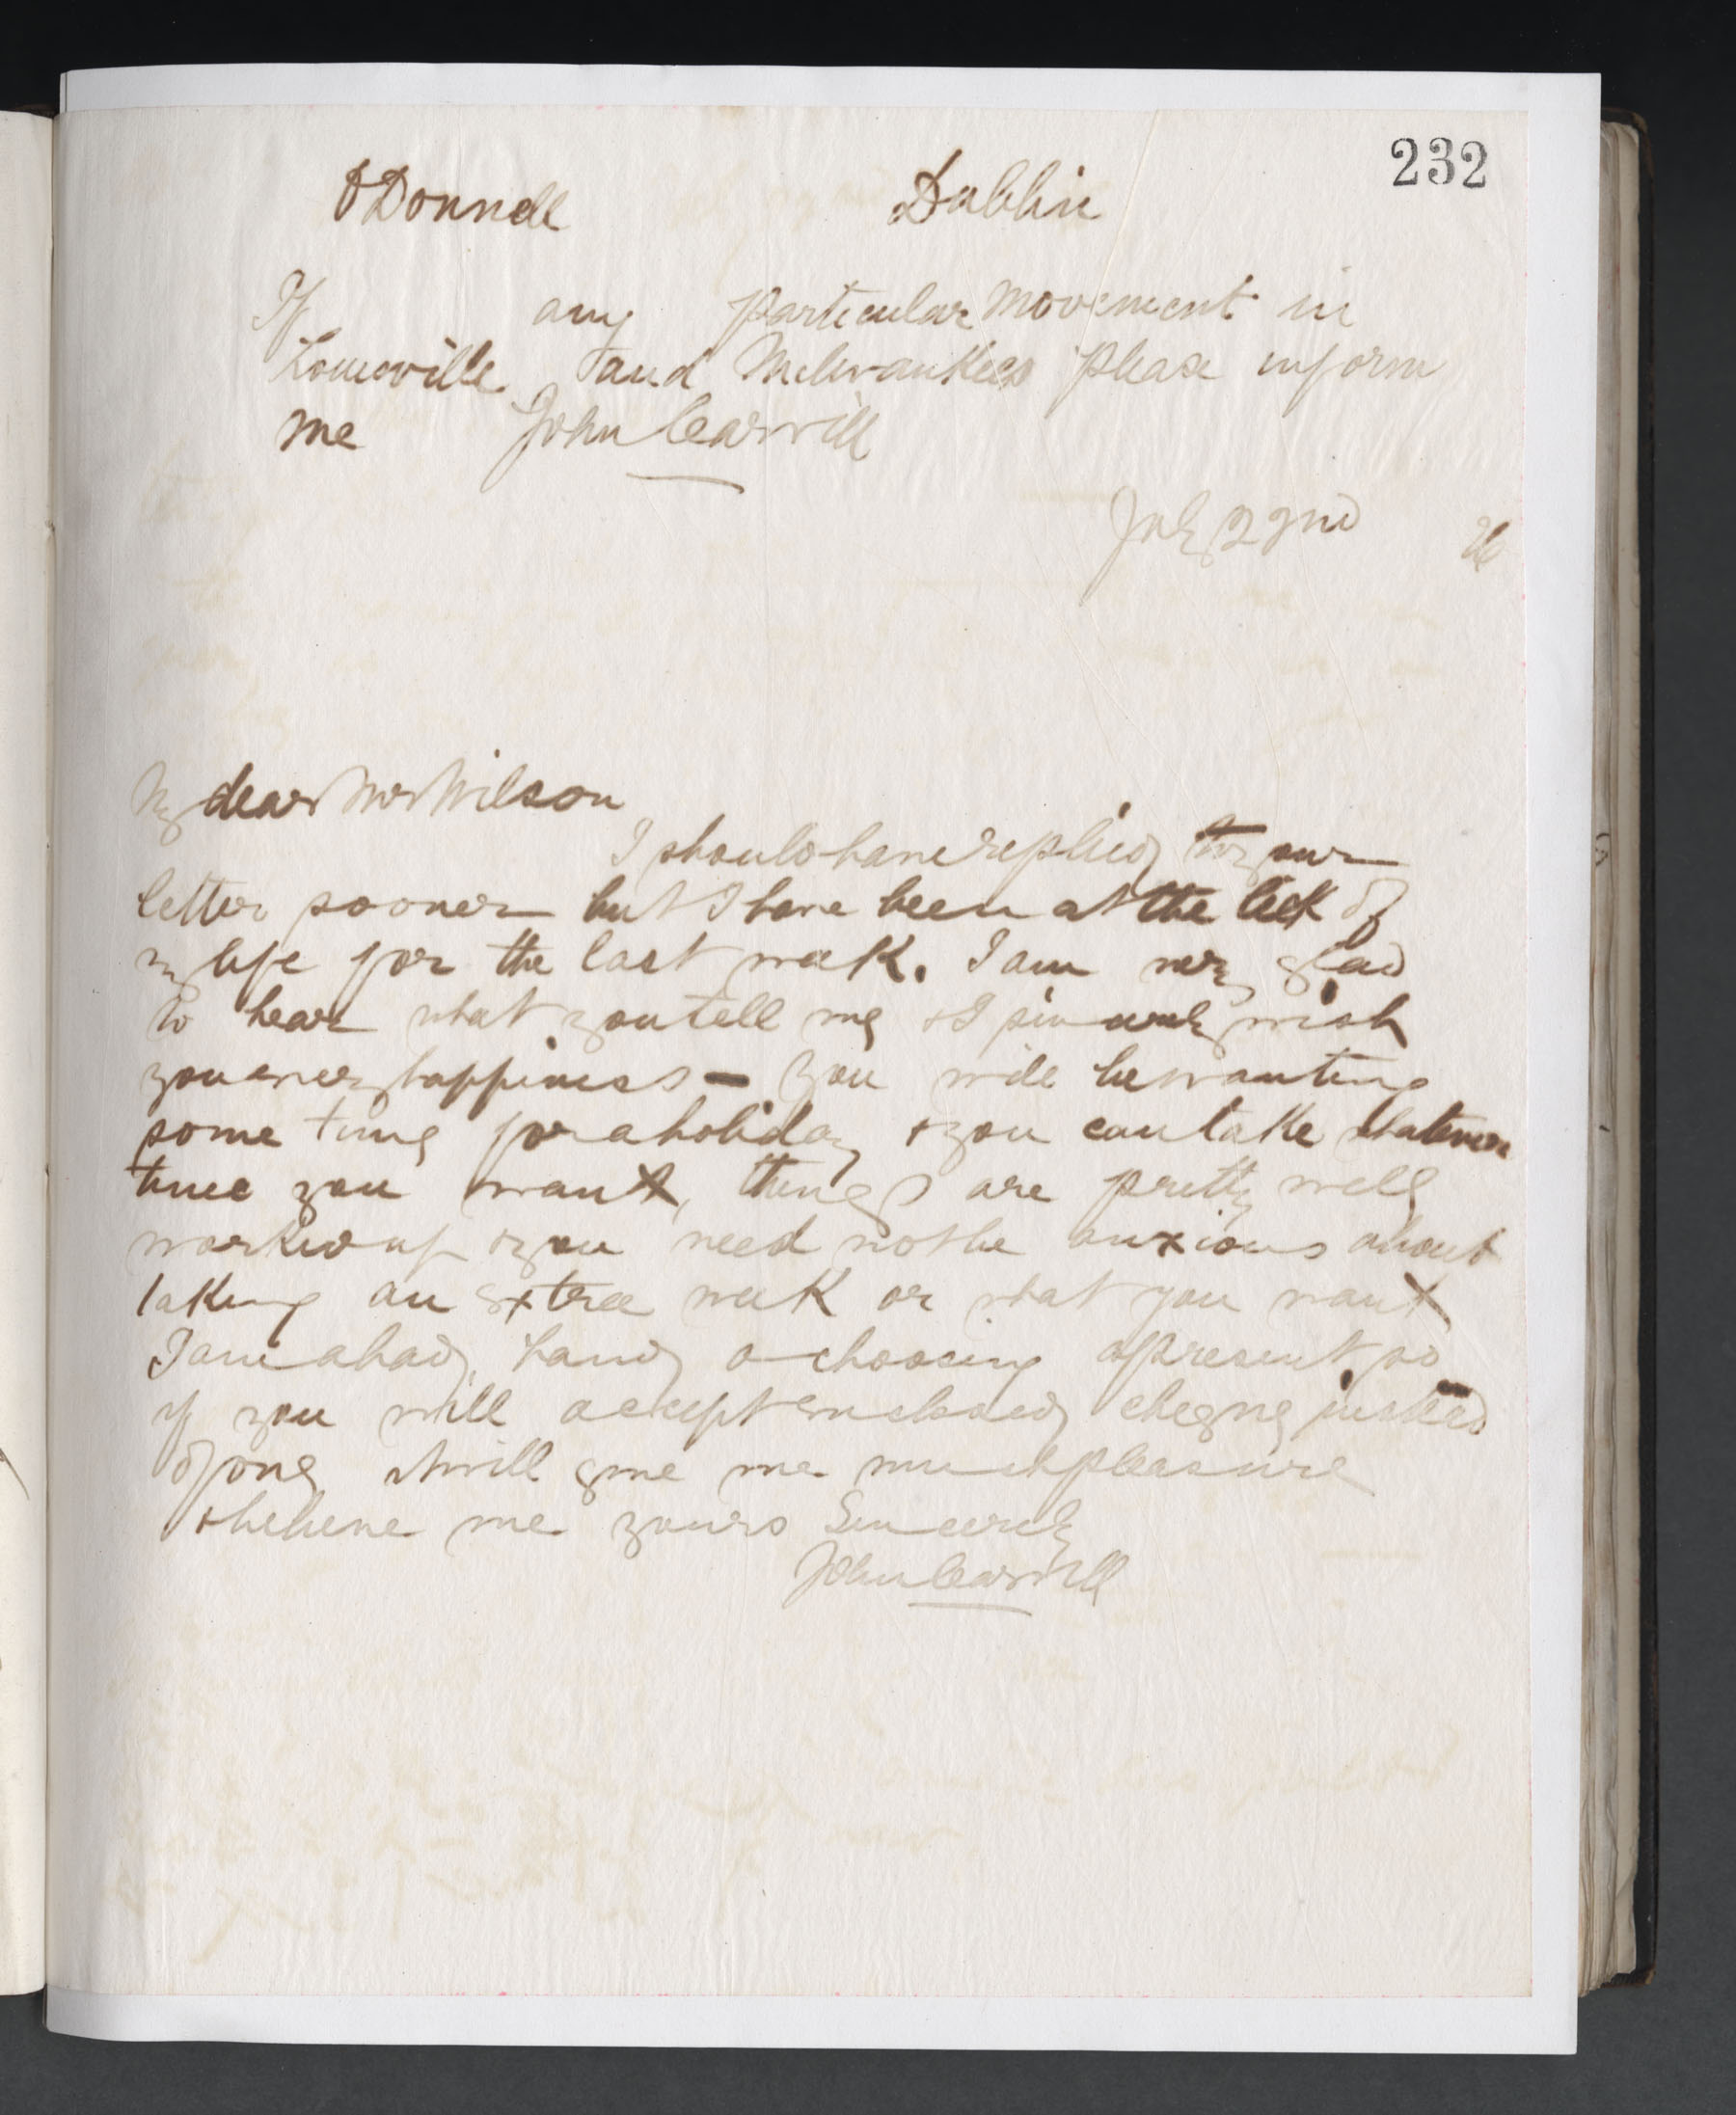 232
O'Donnell Dublin
If any particular movement in
Louisville and Milwaukees please inform
me John Carvill
July 22nd
My dear Mr Wilson
I should have replied to your
letter sooner but I have been at the lick of
my life for the last week. I am very glad
to hear what you tell me & I sincerely wish
you every happiness - You will be wanting
some time for a holiday & you can take whatever
time you want, things are pretty well
worked up & you need not be anxious about
taking an extree week or what you want
I am a bad hand a choosing a present so
if you will accept enclosed cheque instead
of one it will give me much pleasure
& believe me yours Sincerely
John Carvill